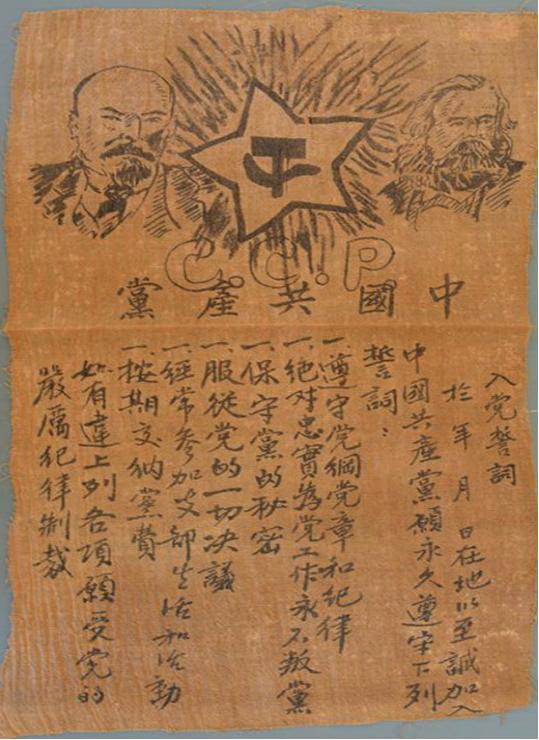 C.C.P
中國共產黨
入党誓詞
於 年 月 日在地以至誠加入
中國共產黨願永久遵守下列
誓詞：
一.遵守党綱党章和紀律
一.絶对忠實為党工作永不叛黨
一.保守黨的秘密
一.服從党的一切决議
一.經常参加支部生活和活動
一.按期交納黨費
如有違上列各項願受党的
嚴厲紀律制裁